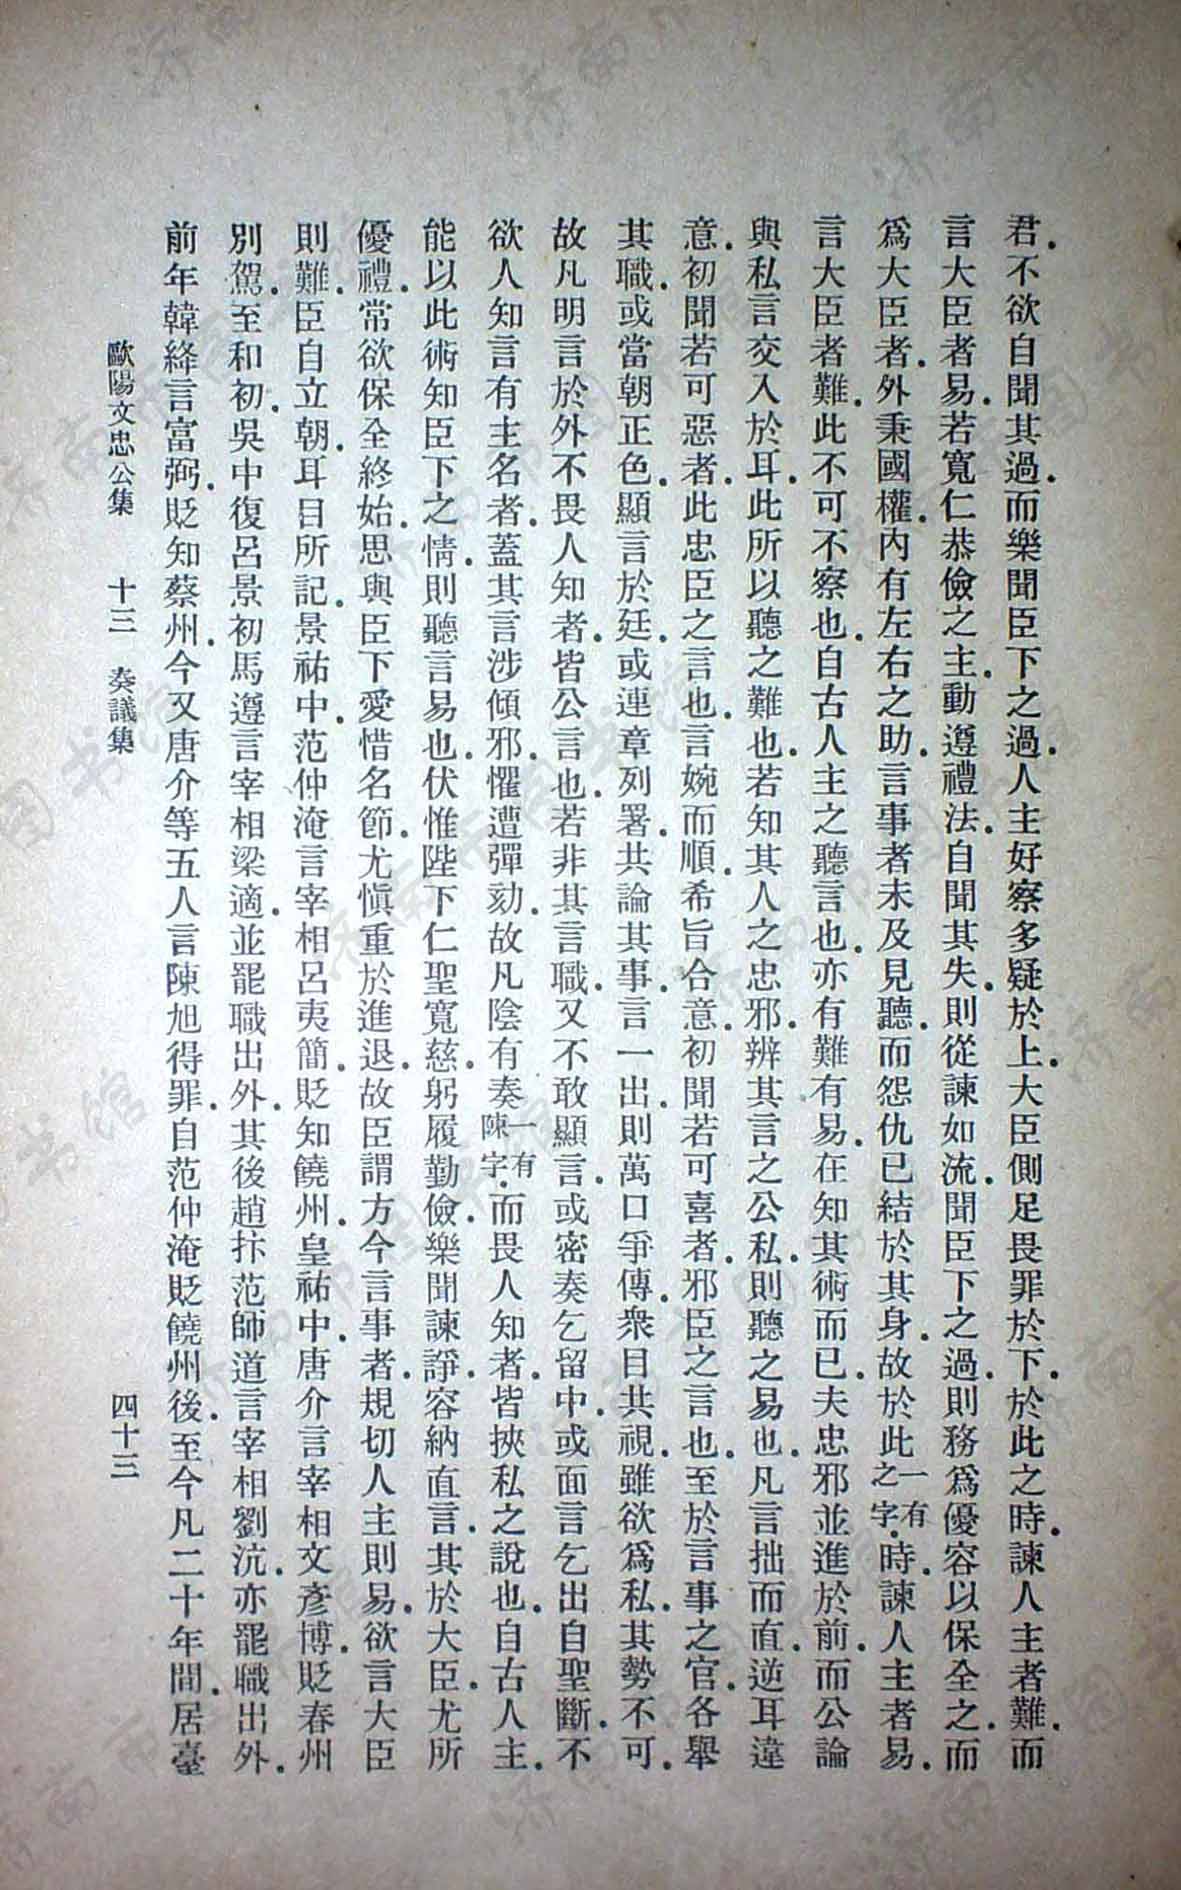 君.不欲自聞其過.而樂聞臣下之過.人主好察多疑於上.大臣側足畏罪於下.於此之時.諫人主者難.而
言大臣者易.若寬仁恭儉之主.動遵禮法.自聞其失.則從諫如流.聞臣下之過.則務爲優容以保全之.而
爲大臣者.外秉國權.內有左右之助.言事者未及見聽.而怨仇已結於其身.故於此一有之字.時.諫人主者易.
言大臣者難.此不可不察也.自古人主之聽言也.亦有難有易.在知其術而已.夫忠邪並進於前.而公論
與私言交入於耳.此所以聽之難也.若知其人之忠邪.辨其言之公私.則聽之易也.凡言拙而直.逆耳違
意.初聞若可惡者.此忠臣之言也.言婉而順.希旨合意.初聞若可喜者.邪臣之言也.至於言事之官.各舉
其職.或當朝正色.顯言於廷.或連章列署.共論其事.言一出.則萬口爭傳.衆目共視.雖欲爲私.其勢不可.
故凡明言於外.不畏人知者.皆公言也.若非其言職.又不敢顯言.或密奏乞留中.或面言乞出自聖斷.不
欲人知言有主名者.蓋其言涉傾邪.懼遭彈劾.故凡陰有奏一有陳字.而畏人知者.皆挾私之說也.自古人主.
能以此術知臣下之情.則聽言易也.伏惟陛下仁聖寬慈.躬履勤儉.樂聞諫諍.容納直言.其於大臣.尤所
優禮.常欲保全終始.思與臣下愛惜名節.尤愼重於進退.故臣謂方今言事者.規切人主則易.欲言大臣
則難.臣自立朝.耳目所記.景祐中.范仲淹言宰相呂夷簡.貶知饒州.皇祐中.唐介言宰相文彥博.貶春州
別駕.至和初.吳中復呂景初馬遵言宰相梁適.並罷職出外.其後趙抃范師道言宰相劉沆.亦罷職出外.
前年韓絳言富弼.貶知蔡州.今又唐介等五人言陳旭得罪.自范仲淹貶饒州後.至今凡二十年間.居臺
歐陽文忠公集 十三 奏議集 四十三